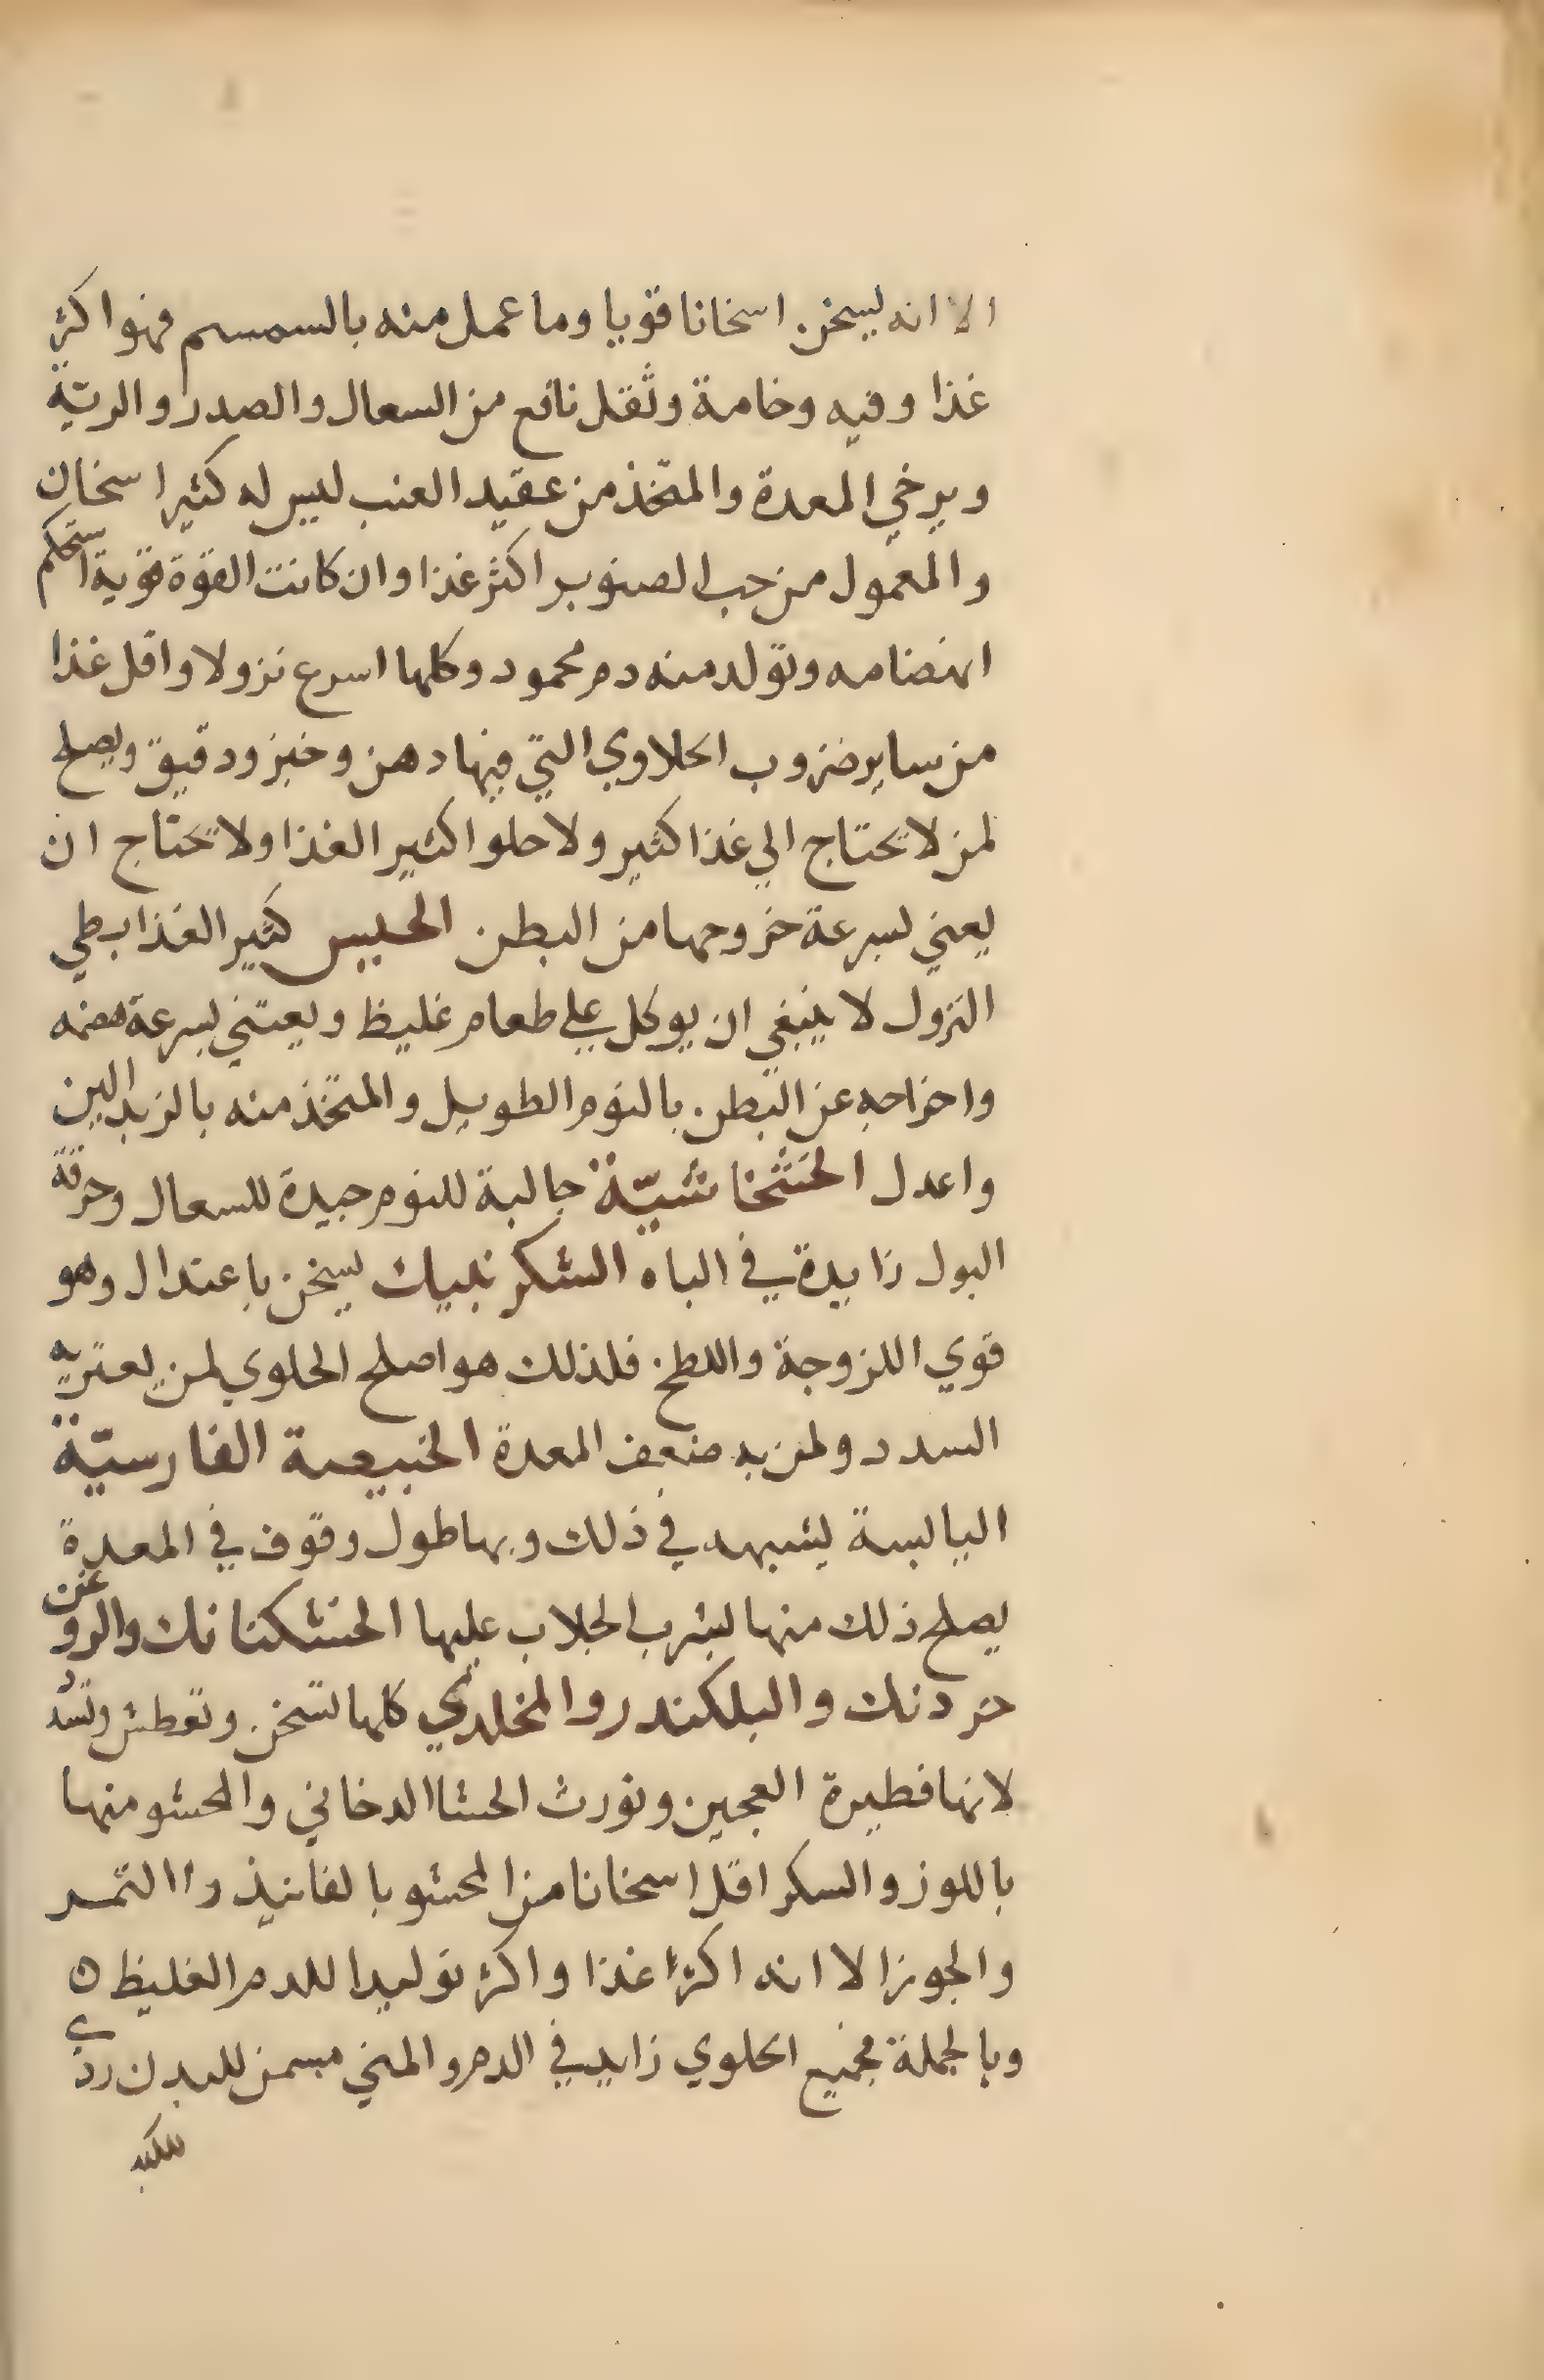 الا انه ليسخن اسخانا قويا وما عمل منه بالسمسم فهو اكثر
غذا وفيه وخامة وثقل نافع من السعال والصدر والرية
ويرخي المعدة والمتخذ من عقيد العنب ليس له كثير اسخان
والمعمول من حب الصنوبر اكثر غذا وان كانت القوة قوية استحكم
انهضامه وتولد منه دم محمود وكلها اسرع نزولا واقل غذا
من ساير ضروب الحلاوي التي فيها دهن وخبز ودقيق ويصلح
لمن لا يحتاج الي غذا كثير ولا حلوا كثير الغذا ولا تحتاج ان
يعني لسرعة خروجها من البطن الحيس كثير الغذا بطي
النزول لا ينبغي ان يوكل علي طعام غليظ ويعتني بسرعة هضمه
واخراجه عن البطن بالنوم الطويل والمتخذ منه بالزبد الين
واعدل الخشخاشيّة جالبة للنوم جيدة للسعال وحرقة
البول زايدة في الباه السكر بليك يسخن باعتدال وهو
قوي اللزوجة واللطخ فلذلك هو اصلح الحلوي لمن يعتريه
السدد ولمن به ضعف المعدة الخبيصة الفارسيّة
اليابسة يشبهه في ذلك وبها طول وقوف في المعدة
يصلح ذلك منها لشرب الجلاب عليها الخشكنانك والروغن
خردنك والبلكندر والمخلدي كلها تسخن وتعطش وتسدُ
لانها فطيرة العجين وتورث الحشا الدخاني والمحشو منها
باللوز والسكر اقل اسخانا من المحشو بالفانيذ واالتمر
والجوز الا انه اكثر غذا واكثر توليدا للدم الغليظ ٥
وبالجملة فجميع الحلوي زايد في الدم والمني مسمن للبدن ردي
للكبد